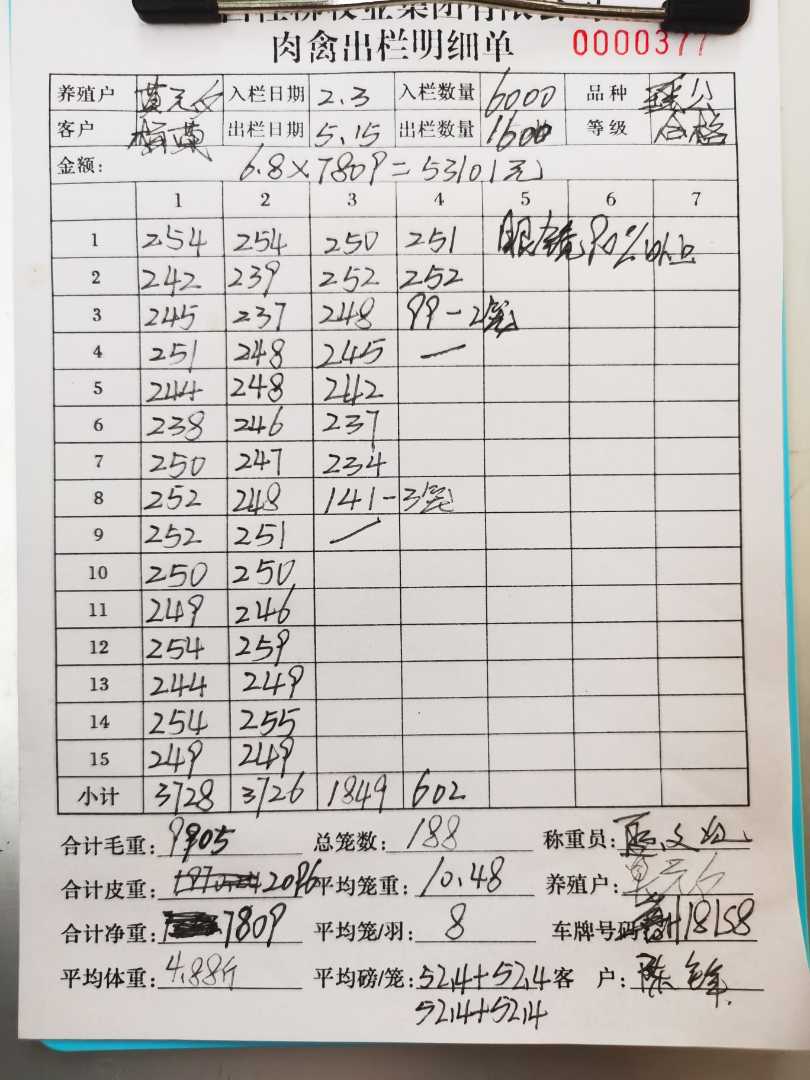 牧业集团有限公司
肉禽出栏明细单 0000377
养殖户 入栏日期 2.3 入栏数量 6000 品种
客户 出栏日期 5.15 出栏数量 1600 等级 合格
金额: 6.8×7809=53101元
1 2 3 4 5 6 7
1 254 254 250 251 眼镜90%以上
2 242 239 252 252
3 245 237 248 99-2笼
4 251 248 245 —
5 244 248 242
6 238 246 237
7 250 247 234
8 252 248 141-3笼
9 252 251 —
10 250 250
11 249 246
12 254 259
13 244 249
14 254 255
15 249 249
小计 3728 3726 1849 602
合计毛重: 9905 总笼数: 188 称重员:
合计皮重: 2096 平均笼重: 10.48 养殖户:
合计净重: 7809 平均笼/羽: 8 车牌号码 18158
平均体重: 4.88斤 平均磅/笼: 52.4+52.4 客户: 陈
52.4+52.4